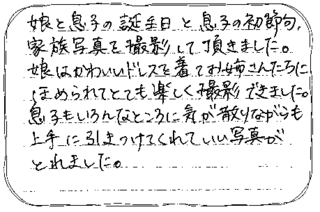 娘と息子の誕生日と息子の初節句、
家族写真を撮影して頂きました。
娘はかわいいドレスを着てお姉さんたちに
ほめられてとても楽しく撮影できました。
息子もいろんなところに気が散りながらも
上手に引きつけてくれていい写真が
とれました。